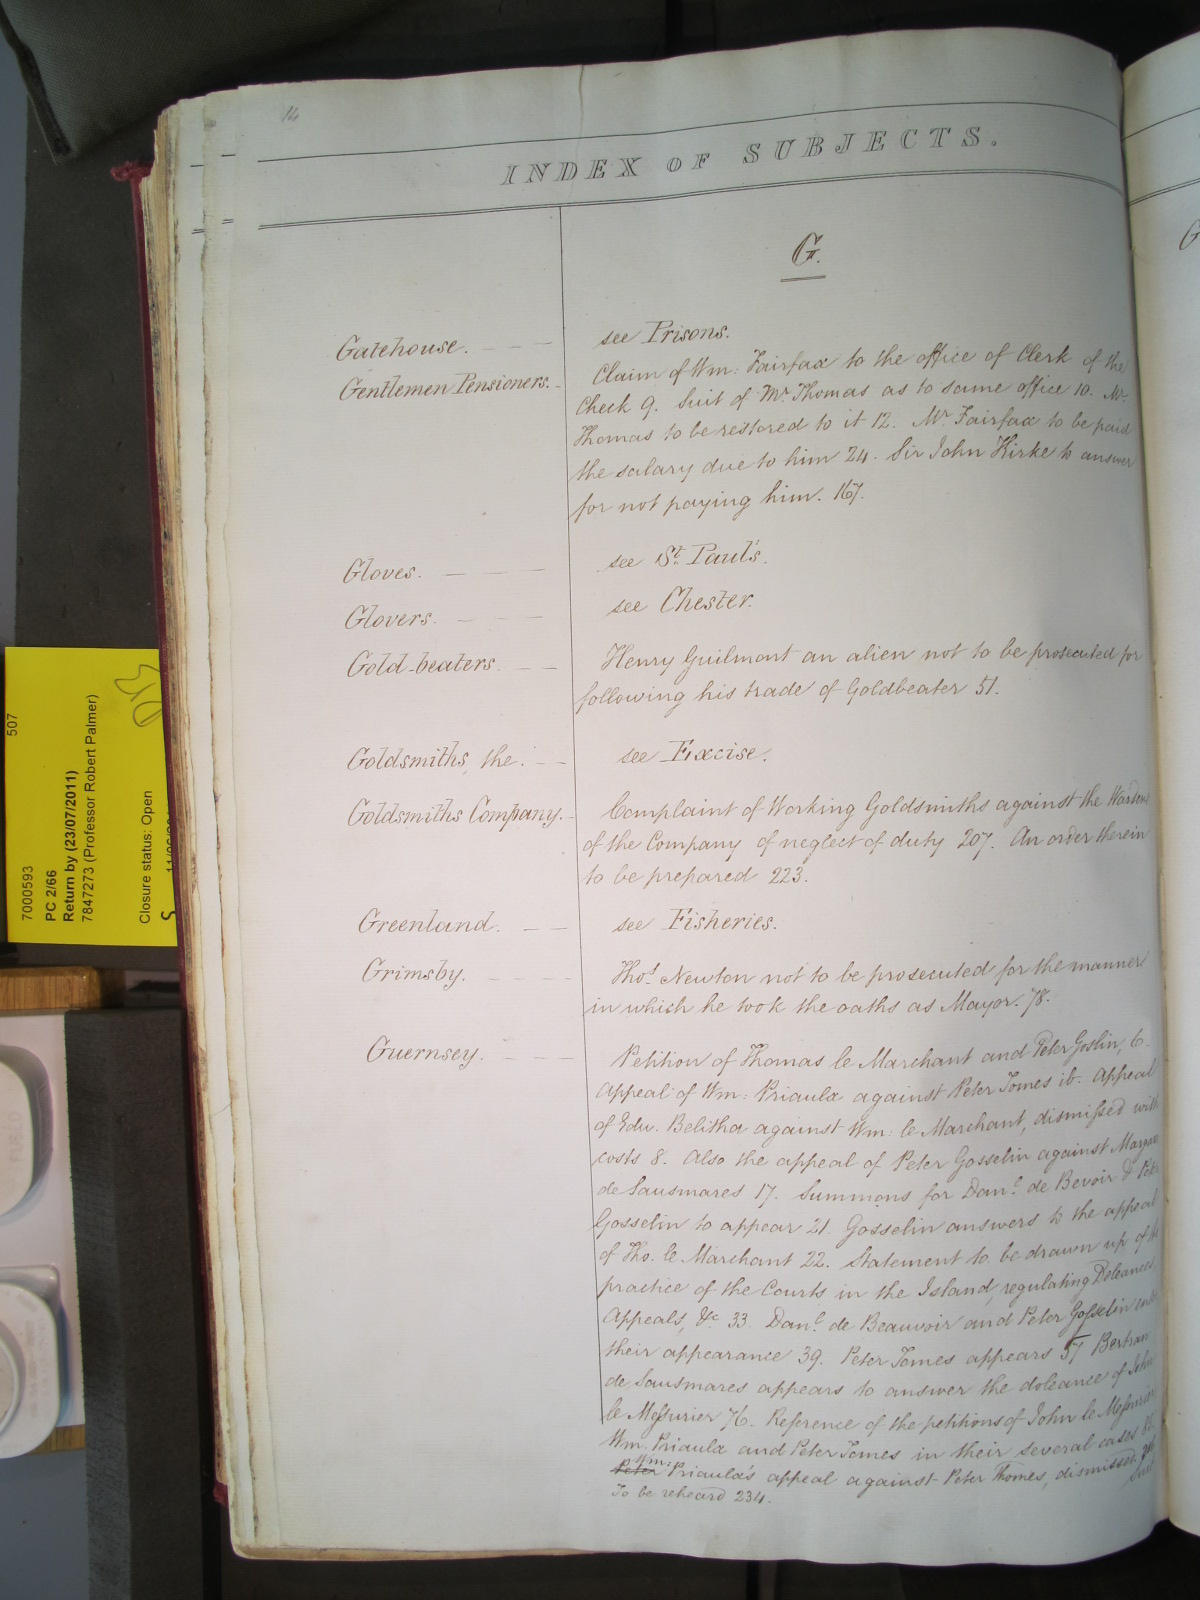 14
INDEX OF SUBJECTS.
G.
Gatehouse. see Prisons.
Gentlemen Pensioners. Claim of Wm: Fairfax to the office of Clerk of the
Check 9. Suit of Mr Thomas as to same office 10. Mr
Thomas to be restored to it 12. Mr Fairfax to be paid
the salary due to him 24. Sir John Kirke to answer
for not paying him. 167.
Gloves. see St. Paul's.
Glovers. see Chester.
Gold-beaters. Henry Guilmont an alien not to be prosecuted for
following his trade of Goldbeater 51.
Goldsmiths, the. see Excise.
Goldsmiths Company. Complaint of Working Goldsmiths against the Wardens
of the Company of neglect of duty 207. An order therein
to be prepared 223.
Greenland. see Fisheries.
Grimsby. Thos. Newton not to be prosecuted for the manner
in which he took the oaths as Mayor. 78.
Guernsey. Petition of Thomas le Marchant and Peter Goslin, 6.
Appeal of Wm: Priaulx against Peter Tomes ib. Appeal
of Edw. Belitha against Wm: le Marchant, dismissed with
costs 8. Also the appeal of Peter Gosselin against
de Sausmares 17. Summons for Danl. de Bevoir & Peter
Gosselin to appear 21. Gosselin answers to the appeal
of Tho. le Marchant 22. Statement to be drawn up of the
practice of the Courts in the Island, regulating Doleances
Appeals, &c 33. Danl. de Beauvoir and Peter Gosselin
their appearance 39. Peter Tomes appears 57 Bertran
de Sausmares appears to answer the doleance of John
le Messurier 76. Reference of the petitions of John le Messurier
Wm. Priaulx and Peter Tomes in their several cases
Peter Wm: Priaulx's appeal against Peter Thomes, dismissed
To be reheard 234.
G
507
7000593
PC 2/66
Return by (23/07/2011)
7847273 (Professor Robert Palmer)
Closure status: Open
S